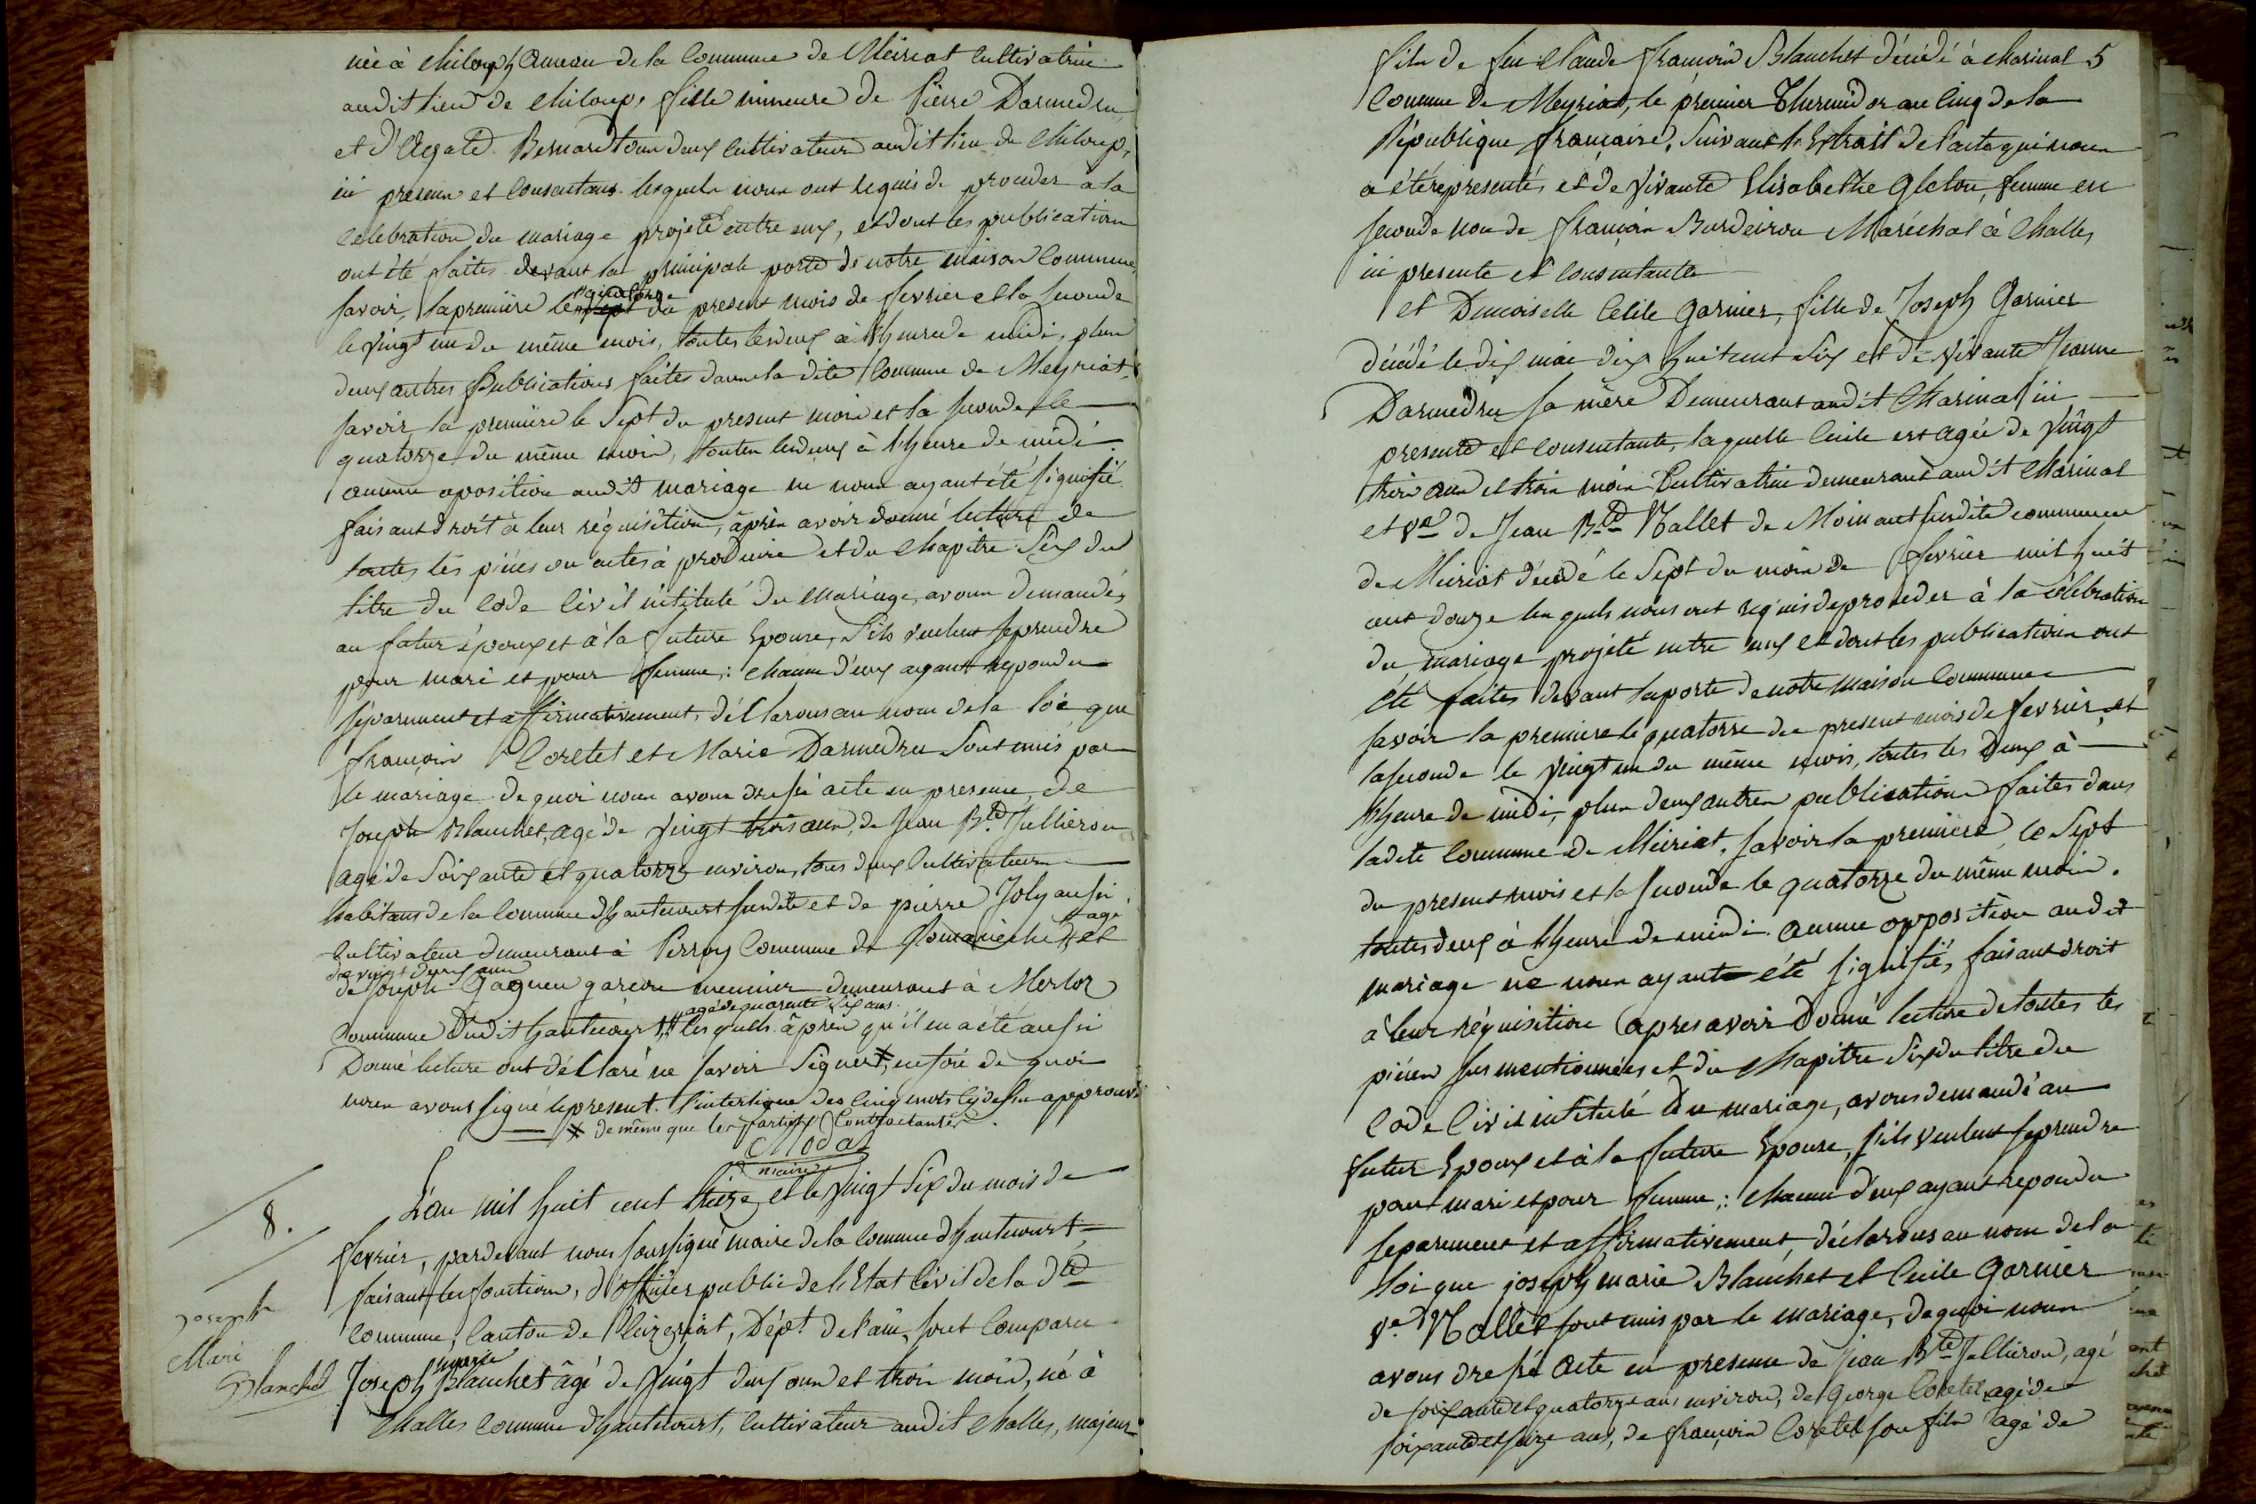 née à chiloup hameau de la Commune de Meiriat Cultivatrice
audit lieu de chiloup, fille mineure de Pierre Darmedru
et d'Agate Bernard tous deux Cultivateurs audit lieu de chiloup,
ici presens et Consentans lesquels nous ont requis de proceder à la
Celebration du mariage projeté entre eux, et dont les publications
ont été faites devant la principale porte de notre maison Commune,
Savoir, la première le quatorze du present mois de fevrier et la seconde
le vingt un du même mois, toutes les deux à l'heure de midi, plus
deux autres Publications faites dans la dite Commune de Meyriat,
Savoir la première le Sept du present mois et la seconde le
quatorze du même mois, toutes les deux à l'heure de midi
aucune oposition audit mariage ne nous ayant été signifié
faisant droit à leur réquisition, après avoir donné lecture de
toutes les pièces ou actes à produire et du Chapitre Six du
titre du Code Civil intitulé du Mariage, avons demandé,
au futur époux et à la future Epouse, s'ils veulent se prendre
pour mari et pour femme; chacun d'eux ayant repondu
séparement et affirmativement, déclarons au nom de la loi que
françois Coretet et Marie Darmedru Sont unis par
le mariage de quoi nous avons dressé acte en presence de
Joseph Blanchet, agé de vingt trois ans, de Jean Bte Jullieron
agé de Soixante et quatorze environ, tous deux Cultivateurs
habitans de la Commune d'hautecourt susdite et de pierre Joly aussi
Cultivateur demeurant à Perroy Commune de Romanèche agé et
de vingt deux ans
de Joseph Gagneu garçon meunier demeurant à Merloz
agé de quarente six ans
Commune Dudit hautecourt, lesquels après qu'il en a été aussi
Donné lecture ont déclaré ne savoir Signer, en foi de quoi
nous avons signé le present. l'interligne des cinq mots cy dessu approuvé
de même que les parties Contractantes.
Modas
maire
8.
L'an mil huit cent treize et le vingt Six du mois de
fevrier, pardevant nous soussigné maire de la Commune d'hautecourt
faisant les fonctions d'officier public de l'Etat Civil de la dte
Commune, Canton de Ceizeriat, Dépt. de l'ain, sont Comparu
Joseph
Mari
Blanchet
Joseph marie Blanchet âgé de vingt deux ans et trois mois, né à
Challes Commune d'hautecourt, Cultivateur audit Challes, majeur
5
fils de feu Claude françois Blanchet décédé à charinal
Commune de Meyriat, le premier Thermidor an Cinq de la
République française, suivant l'Extrait de l'acte qui nous
a été representé, et de vivante Elisabethe Gleton, femme en
seconde nou de françois Burdeiron Maréchal à Challes
ici presente et consentante
et Demoiselle Celile Garnier, fille de Joseph Garnier
décédé le dix mai dix huit cent six et de vivante Jeanne
Darmedru sa mère Demeurant audit Charinal ici
presente et consentante, laquelle Cecile est agée de vingt
trois ans et trois mois Cultivatrice demeurant audit Charinal
et ve de Jean Bte Nallet de Moinant susdite commune
de Meiriat décédé le Sept du mois de fevrier mil huit
cent douze lesquels nous ont requis de proceder à la célébration
du mariage projeté entre eux et dont les publications ont
été faites devant la porte de notre maison Commune
savoir la premiere le quatorze du present mois de fevrier et
la seconde le vingt un du même mois, toutes les deux à
l'heure de midi, plus deux autres publications faites dans
ladite Commune de Meiriat, savoir la premiere, le Sept
du present mois et la seconde le quatorze du même mois.
toutes deux à l'heure de midi. aucune opposition audit
mariage ne nous ayant été signifié, faisant droit
à leur réquisition après avoir Donné lecture de toutes les
pièces sus mentionnées et du Chapitre Six du titre du
Code Civil intitulé du mariage, avons demandé au
futur Epoux et à la future Epouse, s'ils veulent se prendre
pour mari et pour femme; chacun d'eux ayant repondu
séparement et affirmativement, déclarons au nom de la
loi que joseph marie Blanchet et Cecile Garnier
ve Nallet sont unis par le mariage, de quoi nous
avons dressé acte en presence de Jean Bte Jullieron, agé
de soixante et quatorze ans environ, de George Coretet agé de
soixante et seize ans, de françois Coretet son fils agé de